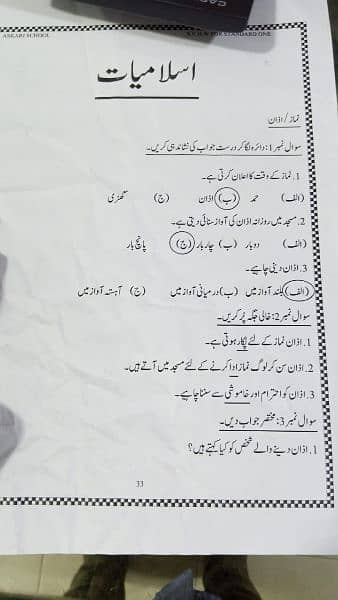 ASKARI SCHOOL FOR STANDARD ONE
اسلامیات
نماز/اذان
سوال نمبر 1: دائرہ لگا کر درست جواب کی نشاندہی کریں۔
1. نماز کے وقت کا اعلان کرتی ہے۔
(الف) حمد (ب) اذان (ج) گھڑی
2. مسجد میں روزانہ اذان کی آواز سنائی دیتی ہے۔
(الف) دو بار (ب) چار بار (ج) پانچ بار
3. اذان دینی چاہیے۔
(الف) بلند آواز میں (ب) درمیانی آواز میں (ج) آہستہ آواز میں
سوال نمبر 2: خالی جگہ پُر کریں۔
1. اذان نماز کے لئے پکار ہوتی ہے۔
2. اذان سن کر لوگ نماز ادا کرنے کے لئے مسجد میں آتے ہیں۔
3. اذان کو احترام اور خاموشی سے سننا چاہیے۔
سوال نمبر 3: مختصر جواب دیں۔
1. اذان دینے والے شخص کو کیا کہتے ہیں؟
33